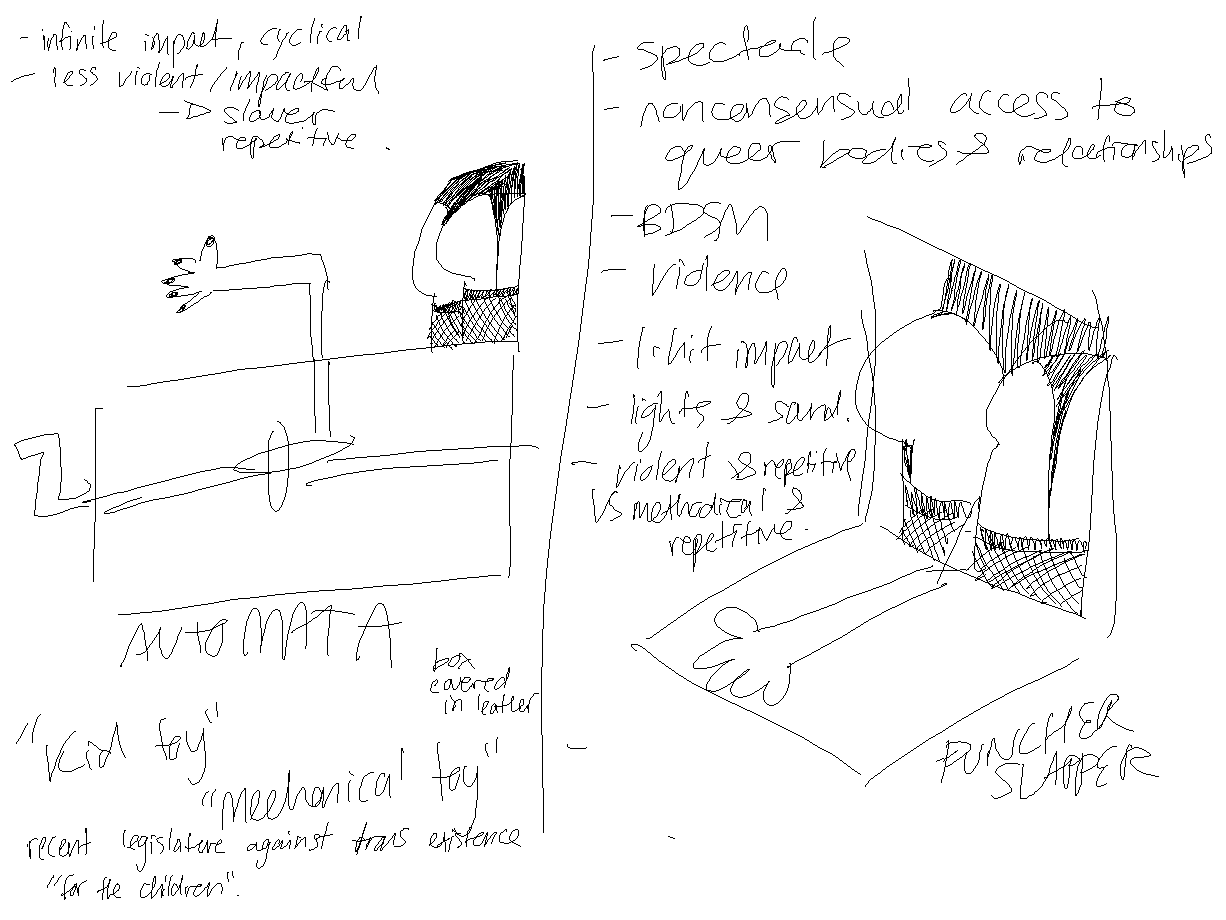 - infinite impact, cyclical
- less violent/impactful
→ slower
repetitive.
AUTOMATA
box
covered
in leather
"Kid toy"
"Mechanical toy"
recent legislature against trans existence
"for the children".
- spectacle
- nonconsensual access to
queer bodies & relationships
- BDSM
- violence
- 1-hit impact
- lights & sound.
- violent & repetitive
VS methodical &
repetitive.
-
PUNCHER
SLAPPER